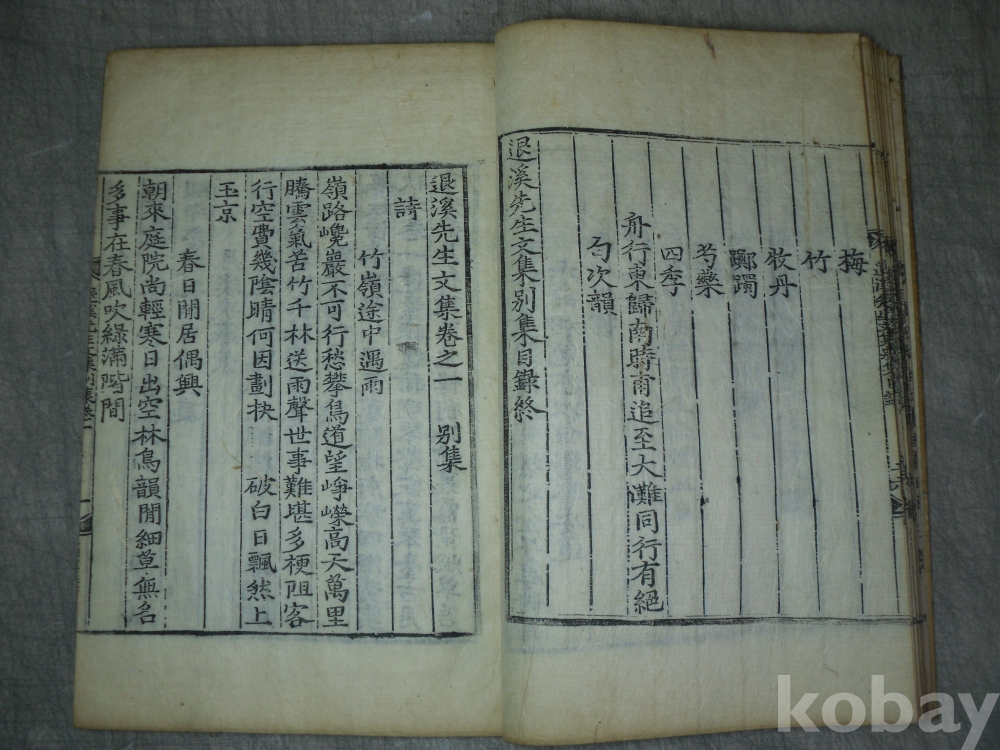 梅
竹
牧丹
躑躅
芍藥
四季
舟行東歸南時甫追至大灘同行有絕
句次韻
退溪先生文集別集目錄終
退溪先生文集卷之一 別集
詩
竹嶺途中遇雨
嶺路巉巖不可行愁攀鳥道望崢嶸高天萬里
騰雲氣苦竹千林送雨聲世事難堪多梗阻客
行空費幾陰晴何因劃抉 破白日飄然上
玉京
春日閒居偶興
朝來庭院尚輕寒日出空林鳥韻閒細草無名
多事在春風吹綠滿階間
kobay